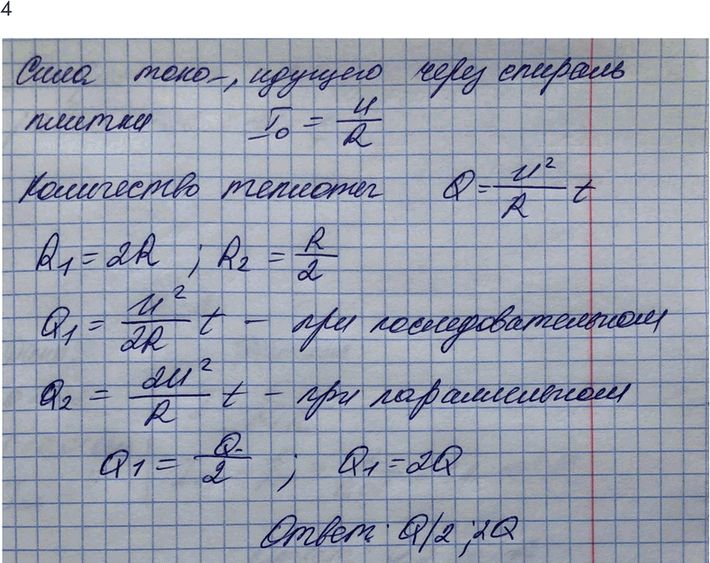 4
Сила тока, идущего через спираль
плитки I₀ = U/R
Количество теплоты Q = U²/R t
R₁ = 2R ; R₂ = R/2
Q₁ = U²/2R t – при последовательном
Q₂ = 2U²/R t – при параллельном
Q₁ = Q/2 ; Q₁ = 2Q
Ответ: Q/2 ; 2Q